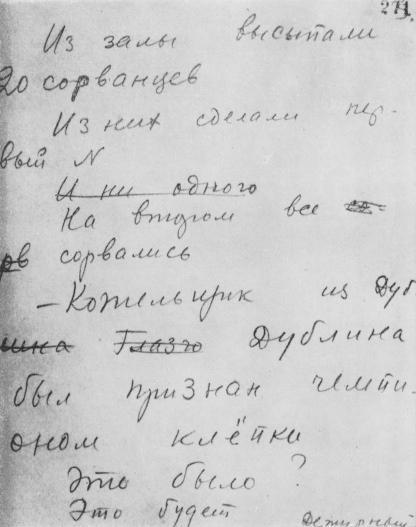 271
Из залы высыпали
20 сорванцев
Из них сделали пер-
вый N
И ни одного
На втором все
рв сорвались
– Котельщик из Дуб
лина Глазго Дублина
был признан чемпи-
оном клёпки
Это было ?
Это будет Дежурный